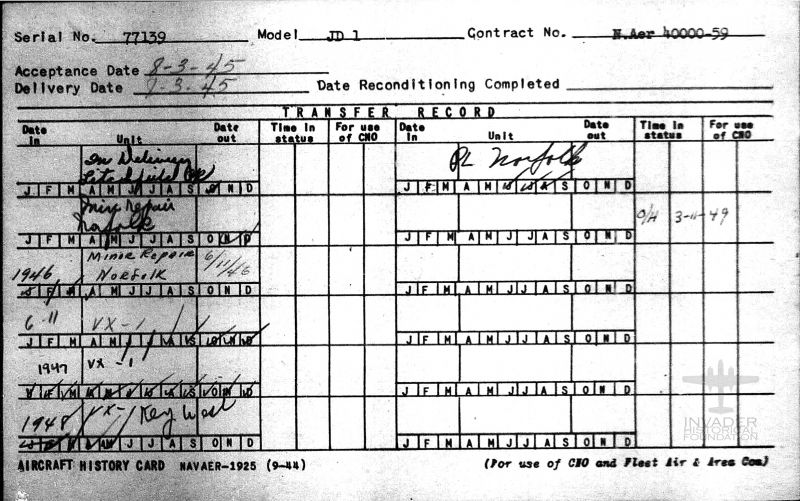 Serial No. 77139 Model JD 1 Contract No. N.Aer 40000-59
Acceptance Date 8-3-45
Delivery Date 9-3-45 Date Reconditioning Completed
TRANSFER RECORD
Date In Unit Date out Time in status For use of CNO Date In Unit Date out Time in status For use of CNO
In Delivery PL Norfolk
Litchfield
J F M A M J J A S O N D J F M A M J J A S O N D
Repair
Norfolk O/H 3-11-49
J F M A M J J A S O N D J F M A M J J A S O N D
Minor Repair 6/11/46
1946 Norfolk
J F M A M J J A S O N D J F M A M J J A S O N D
6-11 VX-1
J F M A M J J A S O N D J F M A M J J A S O N D
1947 VX-1
J F M A M J J A S O N D J F M A M J J A S O N D
1948 VX- Key West
J F M A M J J A S O N D J F M A M J J A S O N D
INVADER
HISTORICAL
FOUNDATION
AIRCRAFT HISTORY CARD NAVAER-1925 (9-44) (For use of CNO and Fleet Air & Area Com)